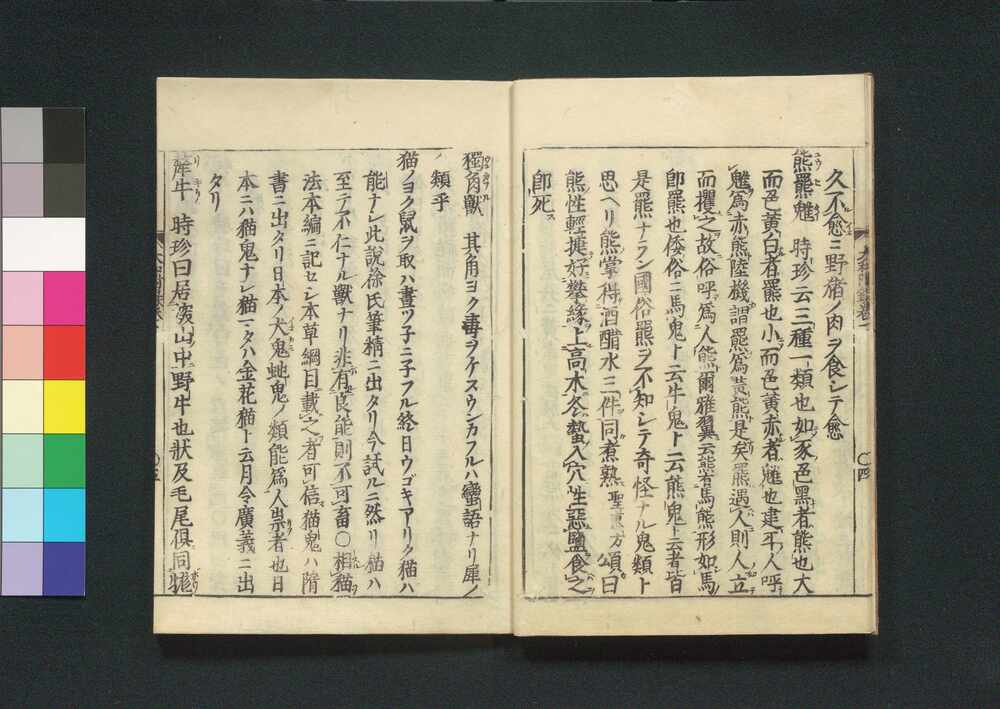 久不愈ニ野猪ノ肉ヲ食シテ愈
熊羆魋 時珍云三種一類也如豕色黒者熊也大
而色黄白者羆也小而色黄赤者魋也建平人呼
魋為赤熊陸機謂羆為黄熊是矣羆遇人則人立
而攫之故俗呼為人熊爾雅翼云熊有馬熊形如馬
即羆也倭俗ニ馬鬼ト云牛鬼ト云熊鬼ト云者皆
是羆ナラン國俗羆ヲ不知シテ奇怪ナル鬼類ト
思ヘリ熊掌得酒醋水三件同煮熟聖惠方頌曰
熊性輕捷好攀緣上高木冬蟄入穴生惡鹽食之
即死
獨角獸 其角ヨク毒ヲケスウンカフルハ蠻語ナリ犀ノ
類乎
猫ノヨク鼠ヲ取ハ晝ツ子ニ子フル終日ウゴキアリク猫ハ
能ナシ此說徐氏筆精ニ出タリ今試ルニ然リ 猫ハ
至テ不仁ナル獸ナリ非有良能則不可畜○相猫
法本編ニ記セシ本草綱目載之者可信猫鬼ハ隋
書ニ出タリ日本ノ犬鬼蚍鬼ノ類能為人祟者也日
本ニハ猫鬼ナシ猫マタハ金花猫ト云月令廣義ニ出
タリ
犛牛 時珍曰居深山中野牛也狀及毛尾俱同犛